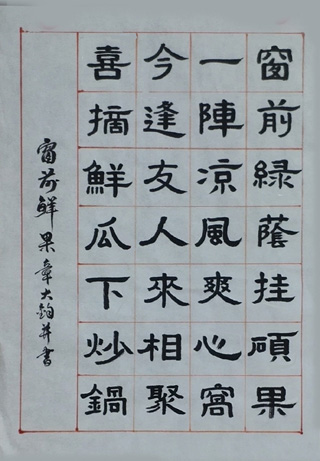 窗前緑蔭挂碩果
一陣凉風爽心窩
今逢友人來相聚
喜摘鮮瓜下炒鍋
窗前鮮果章大鈞并書